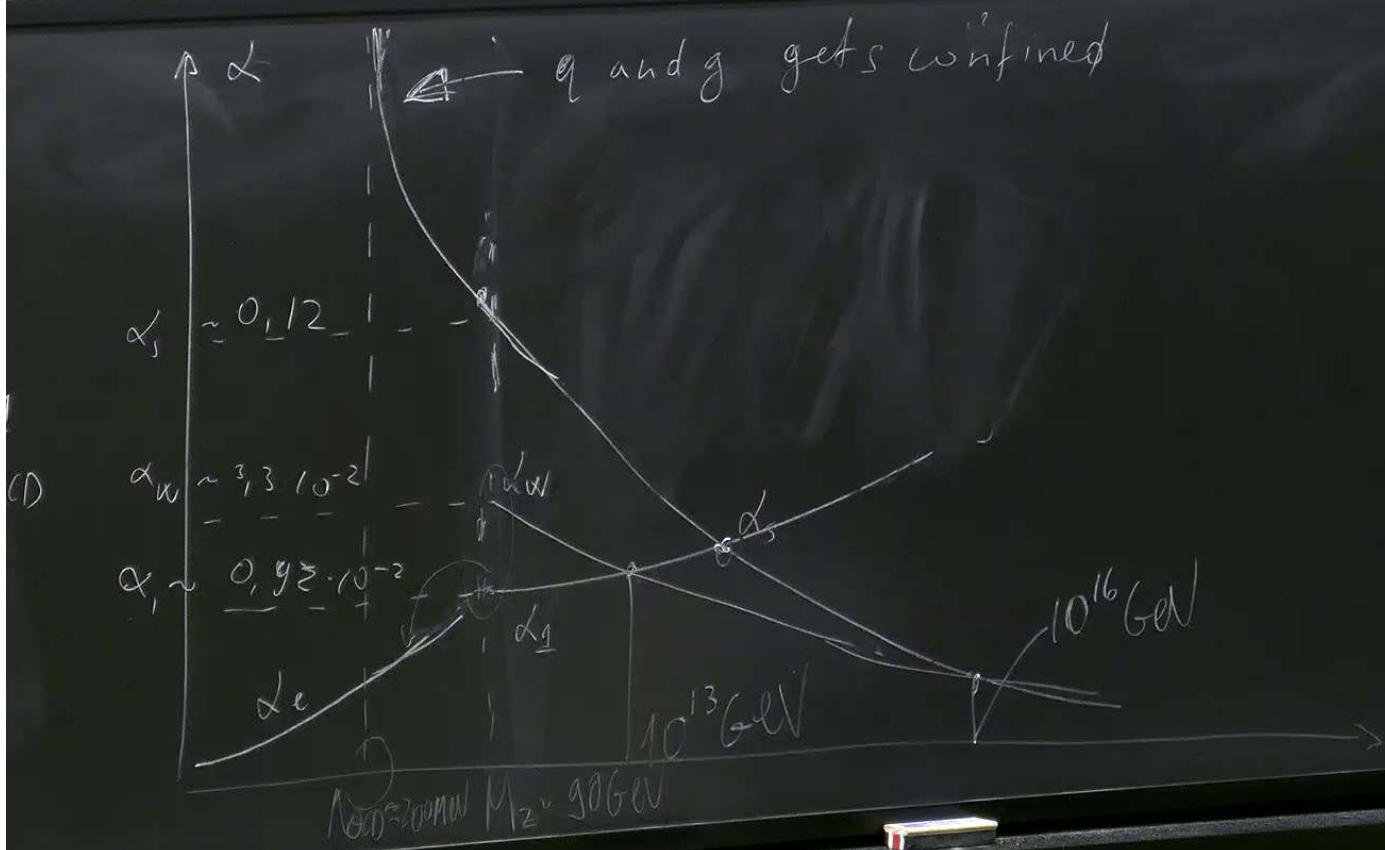 α
q and g gets confined
α_s ~ 0,12
α_w ~ 3,3·10⁻²
α_w
CD
α_1 ~ 0,92·10⁻²
α_s
α_1
10¹⁶ GeV
α_e
10¹³ GeV
Λ_QCD=200MeV
M_Z ~ 90GeV